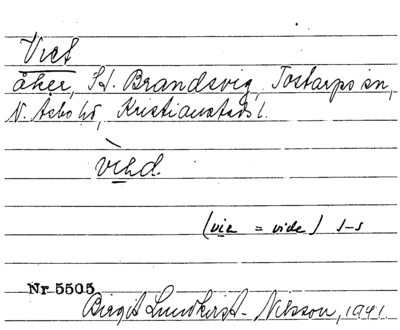 Viet
åker, St. Brandsvig, Tostarps sn,
N. Åsbo hd, Kristianstads l.
(vie = vide) s-s
Nr 5505
Birgit Lundkvist-Nilsson, 1941.